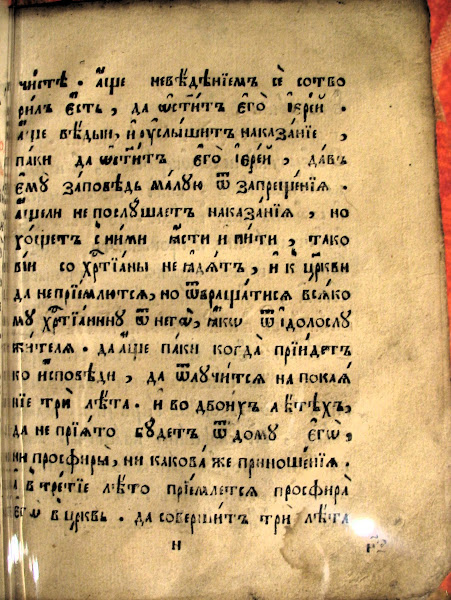 чи́стѣ . а҆́ще невѣ́дѣнїемъ сѐ сотво
ри́лъ є҆́сть , да ѡ҆ст҃и́тъ є҆го̀ і҆ере́й .
а҆́ще вѣ́дыи , и҆ ᲂу҆слы́шитъ наказа́нїе ,
па́ки да ѡ҆ст҃и́тъ є҆го̀ і҆ере́й , да́въ
є҆мꙋ̀ за́повѣдь ма́лꙋю ѿ запреще́нїѧ .
а҆́щели не послꙋ́шаетъ наказа́нїѧ , но
хо́щетъ с ни́ми ꙗ҆́сти и пи́ти , тако
ві́и со хрⷭ҇тїа́ны не ꙗ҆дѧ́тъ , и҆ к цр҃кви
да непрїе́млютсѧ , но ѿвраща́тисѧ всѧ́ко
мꙋ хрⷭ҇тїа́нинꙋ ѿ негѡ̀ , ꙗ҆́кѡ ѿ і҆долослꙋ
жи́телѧ . да а҆́ще па́ки когда̀ прїи́детъ
ко и҆сповѣди , да ѿлꙋчи́тсѧ на покаѧ́
нїе трѝ лѣ́та . и во двои́хъ лѣ́тѣхъ ,
да не прїѧ́то бꙋ́детъ ѿ до́мꙋ є҆гѡ̀ ,
ни просфиры̀ , ни какова́ же приноше́нїѧ .
а҆ в тре́тїе лѣ́то прїе́млетсѧ просфира̀
є҆гѡ̀ в цр҃ковь . да соверши́тъ трѝ лѣ́та
н